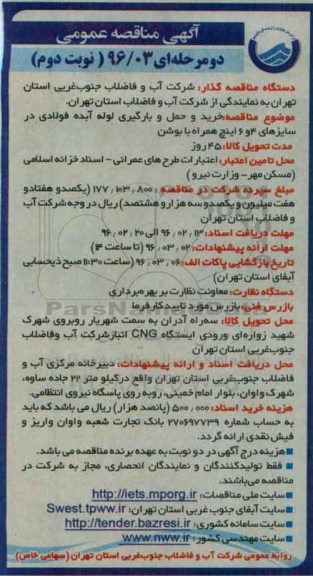 آگهی مناقصه عمومی
دو مرحله‌ای ۹۶/۰۳ ( نوبت دوم)
دستگاه مناقصه گذار: شرکت آب و فاضلاب جنوب‌غربی استان
تهران به نمایندگی از شرکت آب و فاضلاب استان تهران.
موضوع مناقصه: خرید و حمل و بارگیری لوله آبده فولادی در
سایزهای ۴و ۶ اینچ همراه با بوشن
مدت تحویل کالا: ۴۵ روز
محل تامین اعتبار: اعتبارات طرح های عمرانی - اسناد خزانه اسلامی
(مسکن مهر- وزارت نیرو )
مبلغ سپرده شرکت در مناقصه : ۱۷۷,۱۰۳,۸۰۰ (یکصدو هفتادو
هفت میلیون و یکصدو سه هزار و هشتصد) ریال در وجه شرکت آب
و فاضلاب استان تهران
مهلت دریافت اسناد: ۹۶,۰۲,۱۳ الی ۹۶,۰۲,۲۰
مهلت ارائه پیشنهادات: ۹۶,۰۳,۰۲ (تا ساعت ۱۴)
تاریخ بازگشایی پاکات الف: ۹۶,۰۳,۰۶ (ساعت ۱۱:۳۰ صبح ذیحسابی
آبفای استان تهران)
دستگاه نظارت: معاونت نظارت بر بهره‌برداری
بازرس فنی: بازرس مورد تایید کارفرما
محل تحویل کالا: سه‌راه آدران به سمت شهریار روبروی شهرک
شهید زواره‌ای ورودی ایستگاه CNG انبار شرکت آب وفاضلاب
جنوب‌غربی استان تهران
محل دریافت اسناد و ارائه پیشنهادات: دبیرخانه مرکزی آب و
فاضلاب جنوب‌غربی استان تهران واقع درکیلو متر ۲۲ جاده ساوه،
شهرک واوان، بلوار امام خمینی، روبه روی پاسگاه نیروی انتظامی.
هزینه خرید اسناد: ۵۰۰,۰۰۰ (پانصد هزار) ریال می باشد که باید
به حساب شماره ۲۷۰۶۹۷۷۳۹ بانک تجارت شعبه واوان واریز و
فیش نقدی ارائه گردد.
▪ هزینه درج آگهی در دو نوبت به عهده برنده مناقصه می باشد.
▪ فقط تولیدکنندگان و نمایندگان انحصاری، مجاز به شرکت در
مناقصه می‌باشند.
▪ سایت ملی مناقصات: http://iets.mporg.ir
▪ سایت آبفای جنوب غربی استان تهران: Swest.tpww.ir
▪ سایت سامانه کشوری: http://tender.bazresi.ir
▪ سایت مهندسی کشور: www.nww.ir
روابط عمومی شرکت آب و فاضلاب جنوب‌غربی استان تهران (سهامی خاص)